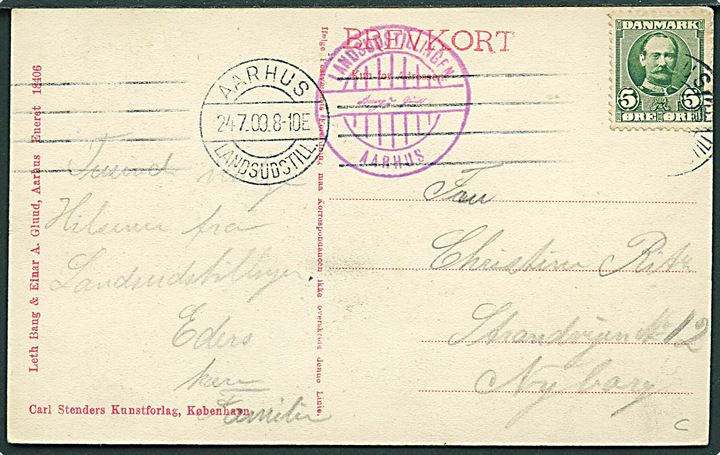 BREVKORT
Kun for Adressen
DANMARK
5 5
ØRE ØRE
AARHUS
24.7.09.8-10E
LANDSUDSTILL
LANDSUDSTILLINGEN
AARHUS
Leth Bang & Einar A. Gluud, Aarhus Eneret 18406
maa Korrespondancen ikke overskride denne Linie.
Tusind
Hilsener fra
Landsudstillingen
Eders
Familie
Fru
Christine
Strandvejen No 12
Nyborg
Carl Stenders Kunstforlag, København.
C